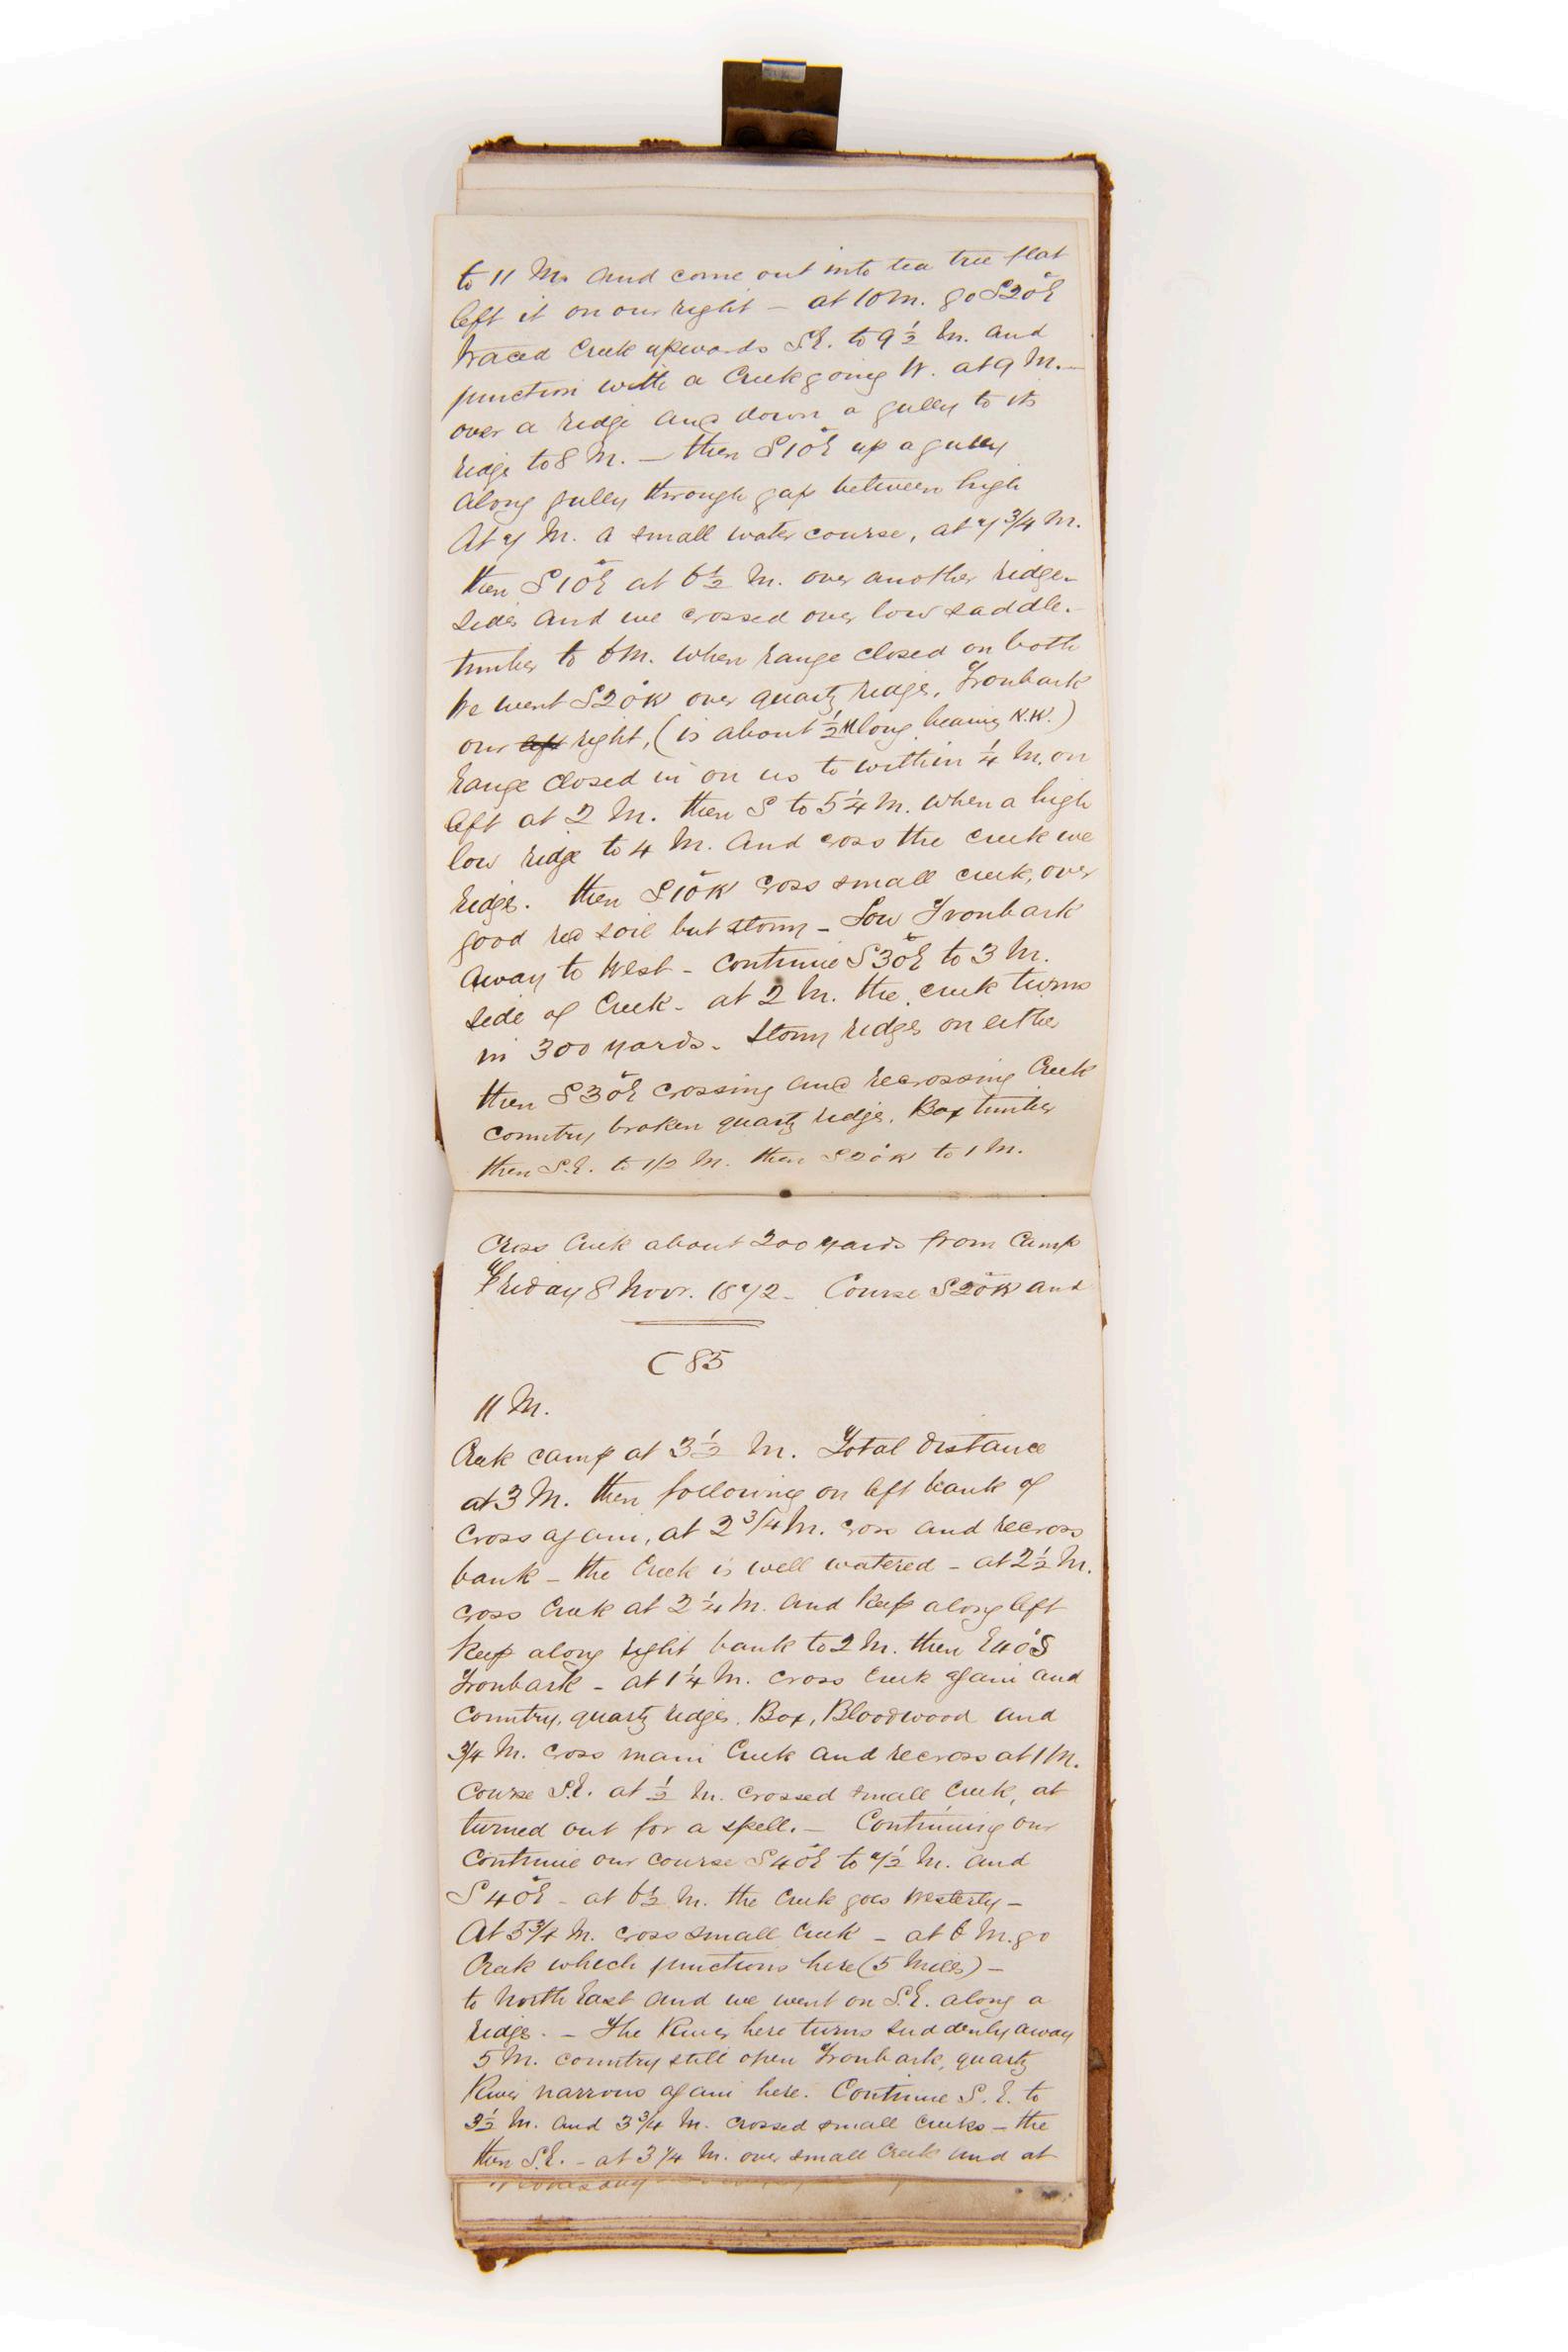 to 11 M. and come out into tea tree flat
left it on our right – at 10 M. go S20°E
traced Creek upwards S.E. to 9½ M. and
junction with a Creek going W. at 9 M. –
over a ridge and down a gully to its
ridge to 8 M. – then S10°E up a gully
along gully through gap between high
At 7 M. a small water course, at 7¾ M.
then S10°E at 6½ M. over another ridge
sides and we crossed over low saddle.
timber to 6 M. when range closed on both
we went S20°W over quartz ridges, Ironbark
our left right, (is about ½ M long bearing N.W.)
range closed in on us to within ¼ M. on
left at 2 M. then S to 5¼ M. when a high
low ridge to 4 M. and cross the creek we
ridges. then S10°W cross small creek, over
good red soil but stony – Low Ironbark
away to West – continue S30°E to 3 M.
side of Creek – at 2 M. the creek turns
in 300 yards. Stony ridges on either
then S30°E crossing and recrossing Creek
country broken quartz ridges. Box timber
then S.E. to 1/2 M. then S20°W to 1 M.
Cross Creek about 200 yards from Camp
Friday 8 Novr. 1872 – Course S20°W and
C 85
11 M.
Creek camp at 3½ M. Total distance
at 3 M. then following on left bank of
cross again, at 2¾ M. cross and recross
bank – the Creek is well watered – at 2½ M.
cross Creek at 2¼ M. and keep along left
keep along right bank to 2 M. then E40°S
Ironbark – at 1¼ M. cross Creek again and
country, quartz ridges. Box, Bloodwood and
¾ M. cross main Creek and recross at 1 M.
course S.E. at ½ M. crossed small Creek, at
turned out for a spell. – Continuing our
continue our course S40°E to 7½ M. and
S40°E – at 6½ M. the Creek goes Westerly –
At 5¾ M. cross small Creek – at 6 M. go
Creek which junctions here (5 Miles) –
to North East and we went on S.E. along a
ridge. – The River here turns suddenly away
5 M. country still open Ironbark, quartz
River narrows again here. Continue S.E. to
3½ M. and 3¾ M. crossed small Creeks – the
then S.E. – at 3¼ M. over small Creek and at